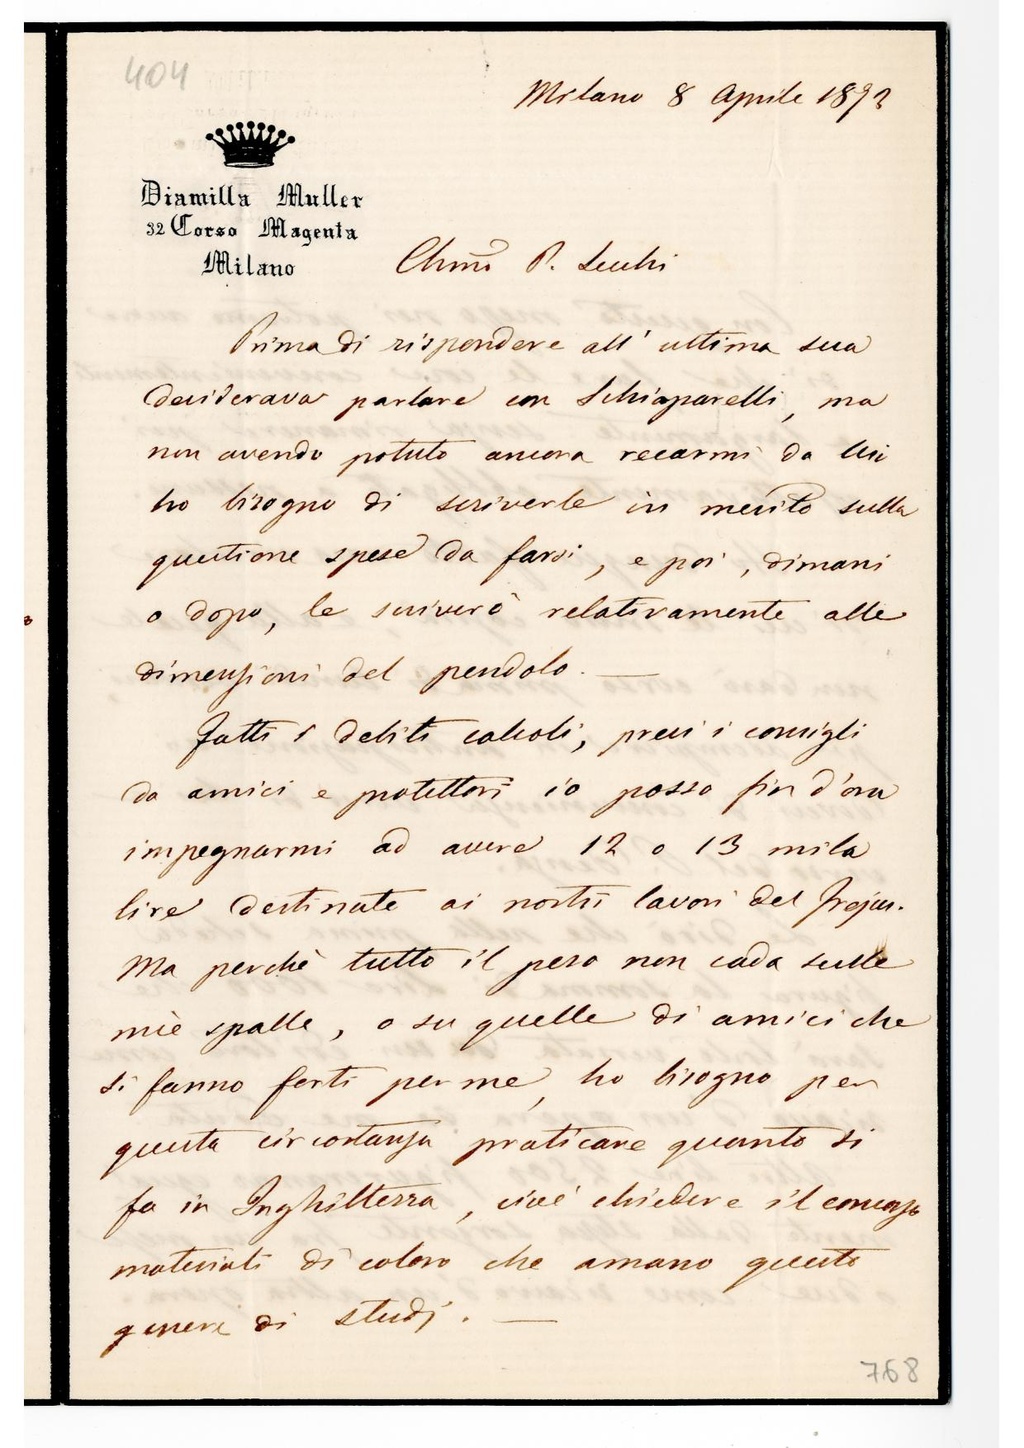 404
Milano 8 Aprile 1872
Diamilla Muller
32 Corso Magenta
Milano
Chmo P. Secchi
Prima di rispondere all' ultima sua
desiderava parlare con Schiaparelli, ma
non avendo potuto ancora recarmi da lui
ho bisogno di scriverle in merito sulla
questione spese da farsi, e poi, dimani
o dopo, le scriverò relativamente alle
dimensioni del pendolo. —
Fatti i debiti calcoli, presi i consigli
da amici e protettori io posso fin d'ora
impegnarmi ad avere 12 o 13 mila
lire destinate ai nostri lavori del Frejus.
Ma perchè tutto il peso non cada sulle
mie spalle, o su quelle di amici che
si fanno forti per me, ho bisogno per
questa circostanza praticare quanto si
fa in Inghilterra, cioè chiedere il concorso
materiale di coloro che amano questo
genere di studj. —
768